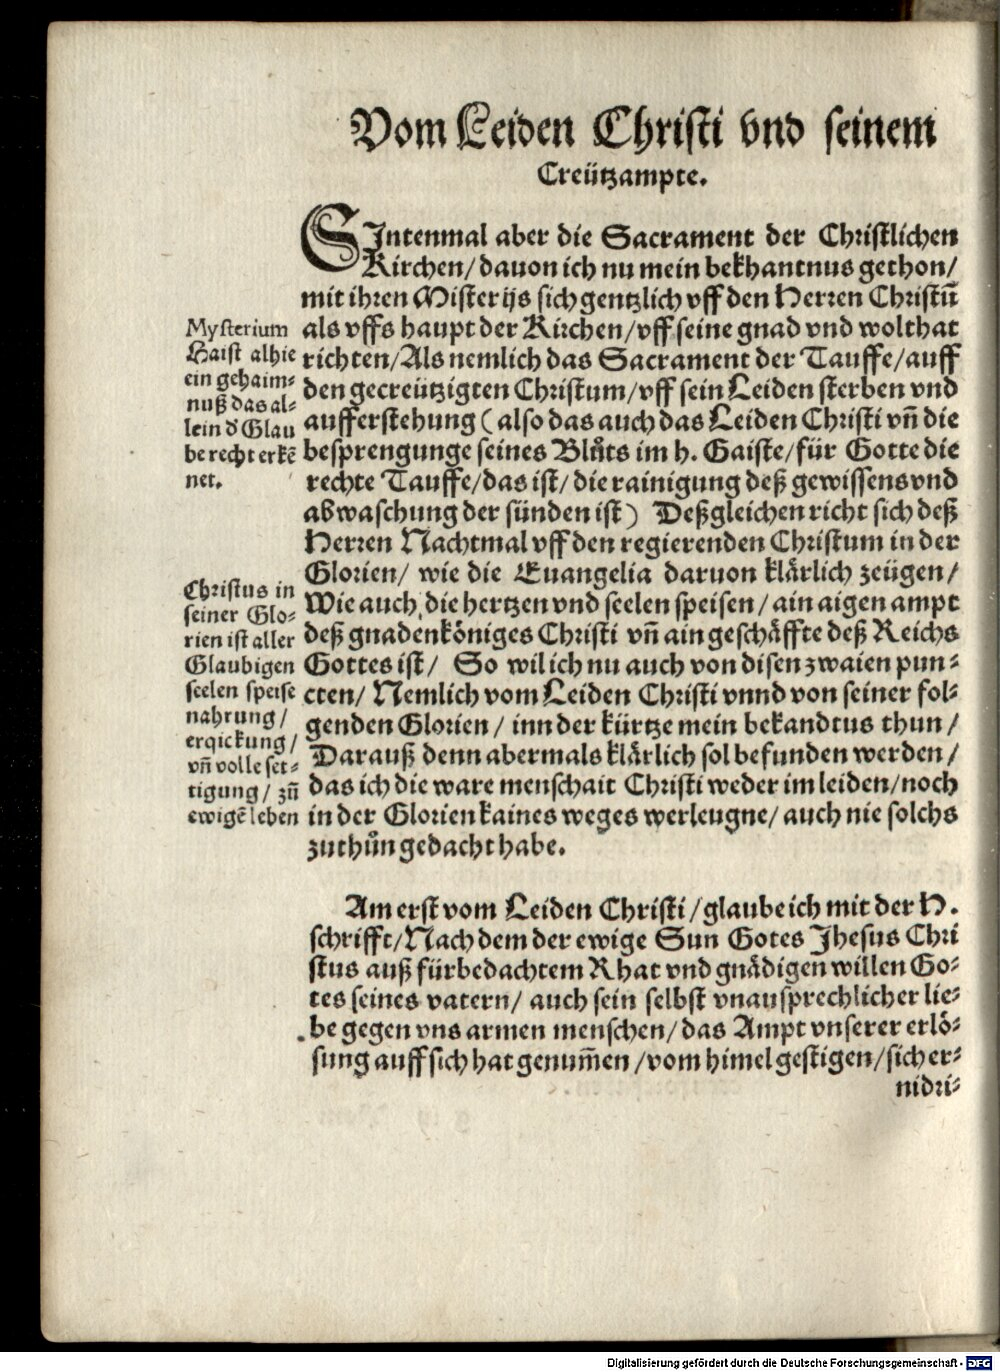 Vom Leiden Christi vnd seinem
Creützampte.
SIntenmal aber die Sacrament der Christlichen
Kirchen/ dauon ich nu mein bekhantnus gethon/
mit ihren Misterijs sich gentzlich vff den Herren Christū
als vffs haupt der Kirchen/ vff seine gnad vnd wolthat
richten/ Als nemlich das Sacrament der Tauffe/ auff
den gecreützigten Christum/ vff sein Leiden sterben vnd
aufferstehung ( also das auch das Leiden Christi vn̄ die
besprengunge seines Blůts im h. Gaiste/ für Gotte die
rechte Tauffe/ das ist/ die rainigung deß gewissens vnd
abwaschung der sünden ist ) Deßgleichen richt sich deß
Herren Nachtmal vff den regierenden Christum in der
Glorien/ wie die Euangelia daruon klärlich zeügen/
Wie auch die hertzen vnd seelen speisen/ ain aigen ampt
deß gnadenköniges Christi vn̄ ain geschäffte deß Reichs
Gottes ist/ So wil ich nu auch von disen zwaien pun-
cten/ Nemlich vom Leiden Christi vnnd von seiner fol-
genden Glorien/ inn der kürtze mein bekandtus thun/
Darauß denn abermals klärlich sol befunden werden/
das ich die ware menschait Christi weder im leiden/ noch
in der Glorien kaines weges werleugne/ auch nie solchs
zuthůn gedacht habe.
Mysterium
Haist alhie
ein gehaim-
nuß das al-
lein d Glau
be recht erkē
net.
Christus in
seiner Glo-
rien ist aller
Glaubigen
seelen speise
nahrung/
erqickung/
vn̄ volle set-
tigung/ zū
ewigē leben
Am erst vom Leiden Christi/ glaube ich mit der H.
schrifft/ Nach dem der ewige Sun Gotes Jhesus Chri
stus auß fürbedachtem Rhat vnd gnädigen willen Go-
tes seines vatern/ auch sein selbst vnausprechlicher lie-
be gegen vns armen menschen/ das Ampt vnserer erlö-
sung auff sich hat genum̄en/ vom himel gestigen/ sich er-
nidri-
Digitalisierung gefördert durch die Deutsche Forschungsgemeinschaft - DFG